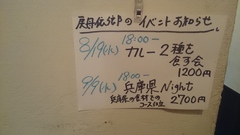 のイベントお知らせ。
8/19(水) 18:00ー
カレー2種を
食す会
1200円
9/9(水) 18:00ー
兵庫県Night
コース仕立 2700円